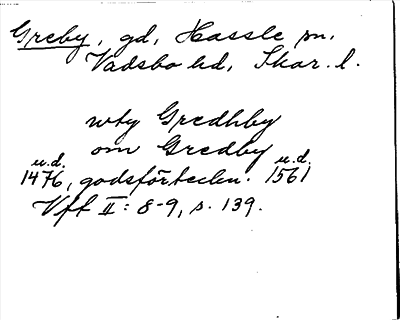 Greby, gd, Hassle sn,
Vadsbo hd, Skar. l.
wty Gredhby
om Gredby
u.d. u.d.
1476, godsförteckn. 1561
Vft II: 8-9, s. 139.